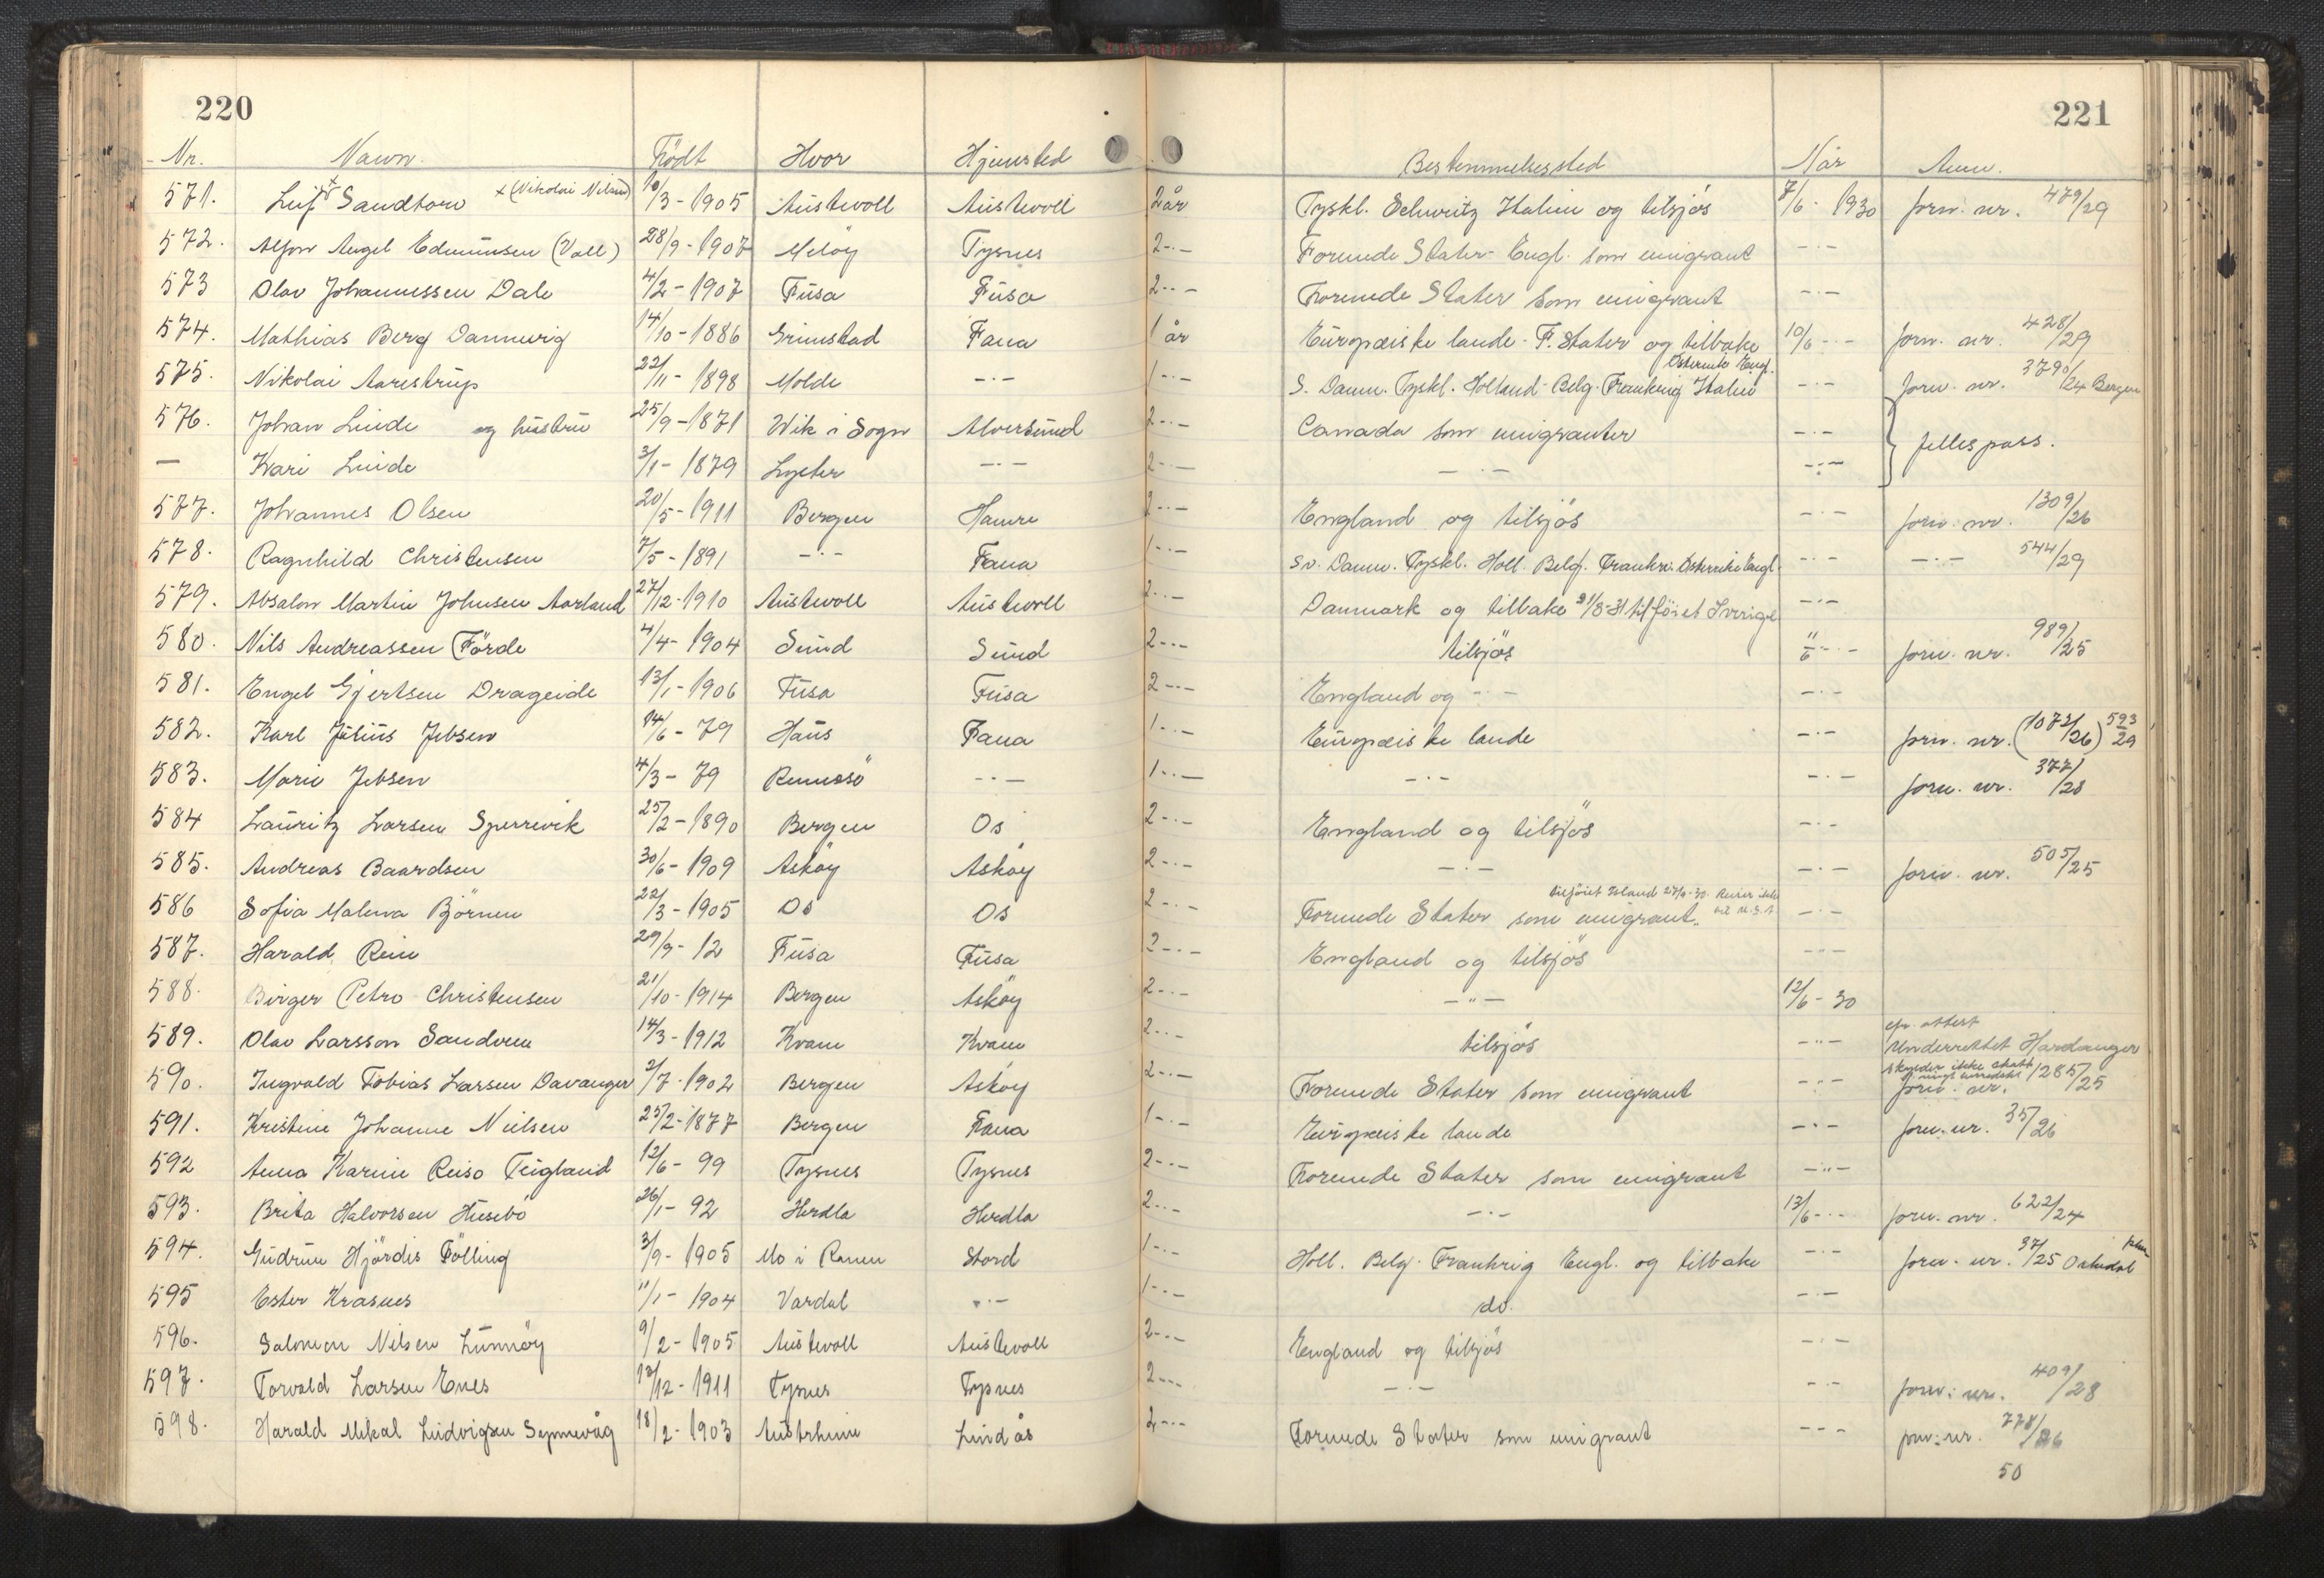 220
221
Nr. Navn. Född Hvor Hjemsted Bestemmelsessted Når Anm.
571. Leif + Sandtorv + (Nikolai Nilsen) 10/3 - 1905 Austevoll Austevoll 2 år Tyskl. Schweitz Italien og tilsjøs 7/6 - 1930 forn. nr. 479/29
572. Alfon Angel Edmunsen (Vall) 28/9 - 1907 Melöy Tysnes 2 -.- Forenede Stater - Engl. som emigrant -.-
573 Olav Johannessen Dale 4/2 - 1907 Fusa Fusa 2 -.- Forenede Stater som emigrant -.-
574. Mathias Berg Dannevig 14/10 - 1886 Grimstad Fana 1 år Europæiske lande - F. Stater og tilbake 10/6 -.- forn. nr. 428/29
575. Nikolai Aarestrup 22/11 - 1898 Molde -.- 1 -.- S. Danm. Tyskl. Holland - Belg. Frankrig Italien Østerrike Engl. -.- forn. nr. 3790/24 Bergen
576. Johan Linde og hustru 25/9 - 1871 Wik i Sogn Alversund 2 -.- Canada som emigranter -.- fellespass.
— Kari Linde 3/1 - 1879 Lyster -.- 2 -.- -.- -.-
577. Johannes Olsen 20/5 - 1911 Bergen Hamre 2 -.- England og tilsjös -.- forn. nr. 1309/26
578. Ragnhild Christensen 7/5 - 1891 -.- Fana 1 -.- Sv. Danm. Tyskl. Holl. Belg. Frankr. Østerrike Engl. -.- -.- 544/29
579. Absalon Martin Johnsen Aarland 27/12 - 1910 Austevoll Austevoll 2 -.- Danmark og tilbake 21/8-31 tilföiet Sverige -.-
580. Nils Andreassen Förde 4/4 - 1904 Sund Sund 2 -.- tilsjös 11/6 -.- forn. nr. 989/25
581. Engel Gjertsen Drageide 13/1 - 1906 Fusa Fusa 2 -.- England og -.- -.-
582. Karl Julius Jebsen 14/6 - 79 Haus Fana 1 -.- Europæiske lande -.- forn. nr. (1073/26) 593/29
583. Marie Jebsen 4/3 - 79 Rennesö -.- 1 -.- -.- -.- forn. nr. 377/28
584 Lauritz Larsen Sperrevik 25/2 - 1890 Bergen Os 2 -.- England og tilsjös -.-
585. Andreas Baardsen 30/6 - 1909 Asköy Asköy 2 -.- -.- -.- forn. nr. 505/25
586 Sofia Malena Björnen 22/3 - 1905 Os Os 2 -.- Forenede Stater som emigrant. -.-
587. Harald Rein 29/9 - 12 Fusa Fusa 2 -.- England og tilsjös -.-
588. Birger Petro Christensen 21/10 - 1914 Bergen Asköy 2 -.- -"- 12/6 - 30
589. Olav Larsson Sandven 14/3 - 1912 Kvam Kvam 2 -.- tilsjös -"- Underrettet Hardanger
590. Ingvald Tobias Larsen Davanger 2/7 - 1902 Bergen Asköy 2 -.- Forenede Stater som emigrant -.- forn. nr. 1285/25
591. Kristine Johanne Nielsen 25/2 - 1877 Bergen Fana 1 -.- Europæiske lande -.- forn. nr. 35/26
592 Anna Karine Reiso Teigland 12/6 - 99 Tysnes Tysnes 2 -.- Forenede Stater som emigrant -"-
593. Brita Halvorsen Husebö 26/1 - 92 Herdla Herdla 2 -.- -.- 13/6 -.- forn. nr. 622/24
594. Gudrun Hjördis Fölling 3/9 - 1905 Mo i Ranen Stord 1 -.- Holl. Belg. Frankrig Engl. og tilbake -.- forn. nr. 37/25
595 Ester Krasnes 11/1 - 1904 Vardal -.- 1 -.- do. -.-
596. Salomon Nilsen Lunnöy 9/2 - 1905 Austevoll Austevoll 2 -.- England og tilsjös -.-
597. Torvald Larsen Enes 12/12 - 1911 Tysnes Tysnes 2 -.- -.- -.- forn. nr. 409/28
598. Harald Mikal Ludvigsen Synnevåg 18/2 - 1903 Austrheim Lindås 2 -.- Forenede Stater som emigrant --- forn. nr. 778/26
50